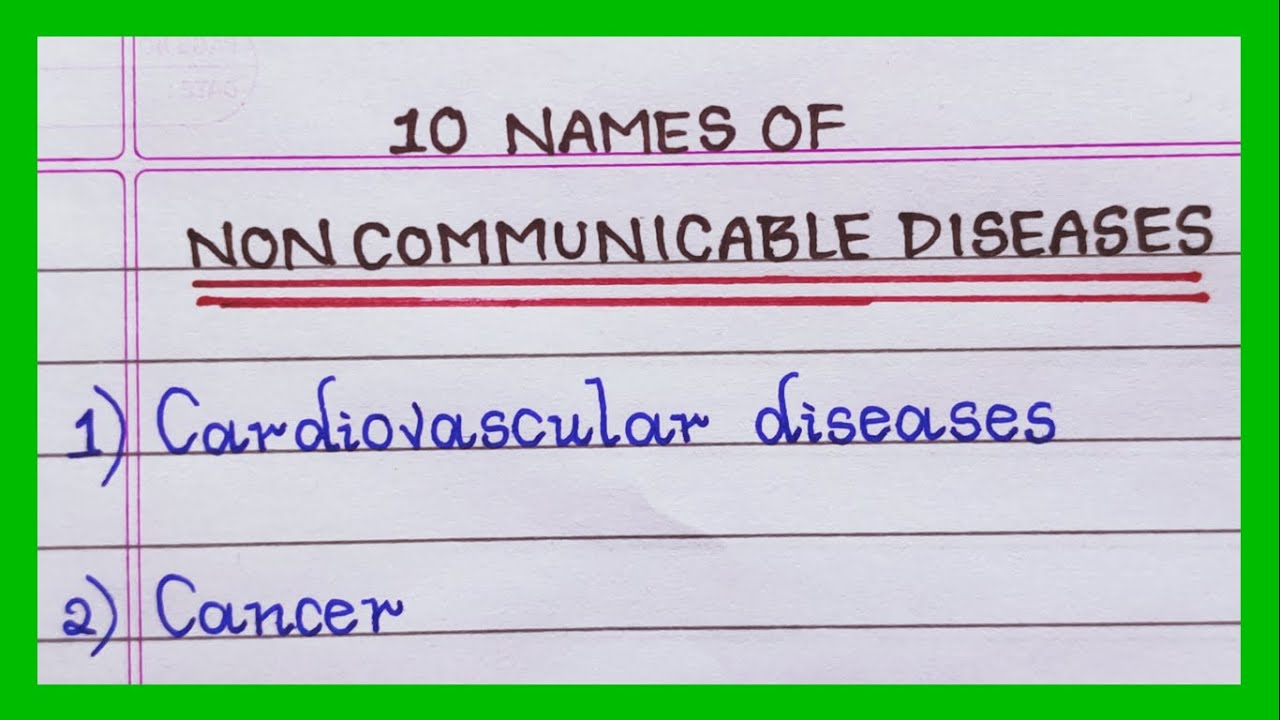 10 NAMES OF
NON COMMUNICABLE DISEASES
1) Cardiovascular diseases
2) Cancer